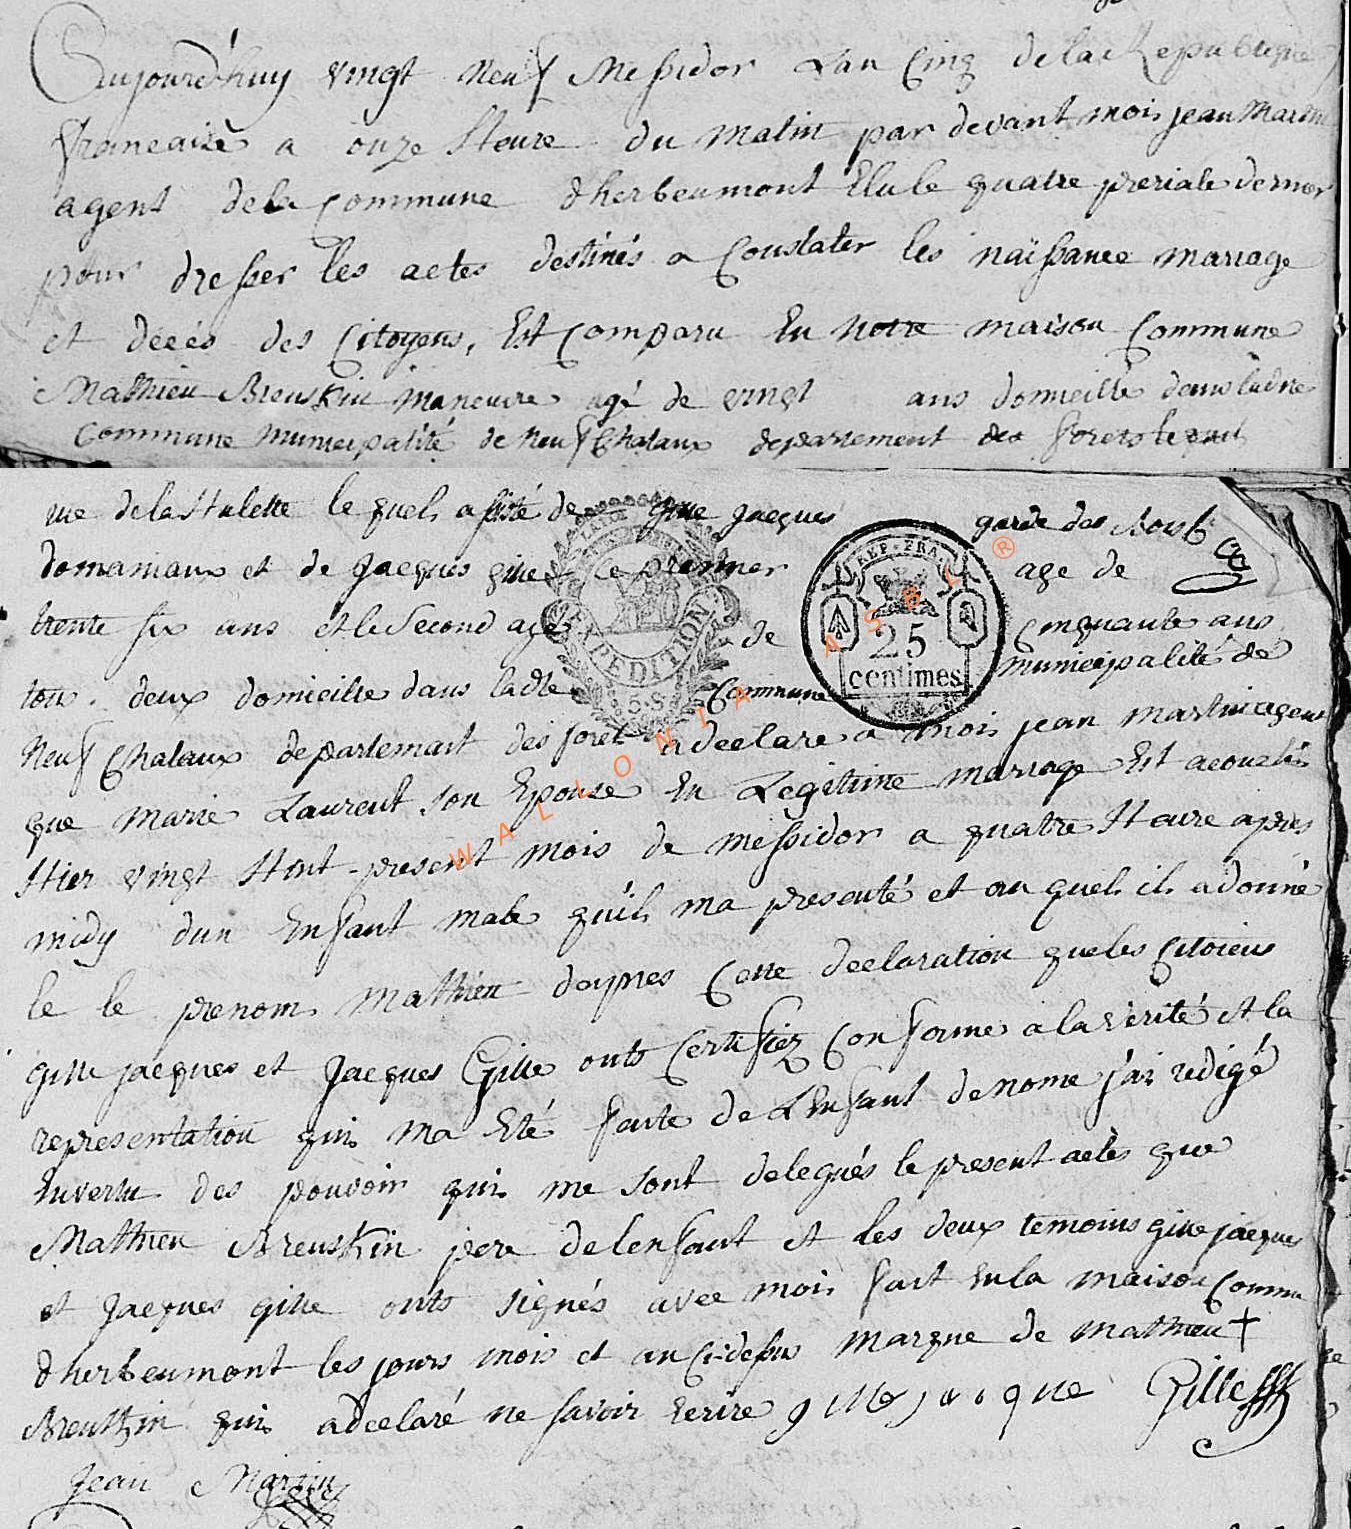 Aujourd'huy vingt neuf Messidor L'an Cinq de la Republique
francaise a onze heure du matin par devant moi jean Martin
agent de la commune dherbeumont Elu le quatre preriale dernier
pour dresser les actes destinés a Constater les naissance mariage
et décés des Citoyens, Est comparu En notre maison Commune
Mathieu Breuskin maneuvre agé de vingt ans domicilié dans ladite
Commune municipalité de neufChataux departement des forets
rue de la Halette le quel assisté de gille jacques garde des Bois
domaniaux et de Jacques gille Le premier age de
trente six ans et le Second agé de Cinquante ans
tou deux domicilie dans ladte Commune municipalité de
neufChataux departemant des foret a declare a moi jean martin agent
que marie Laurent son Epouse En Legitime mariage Est acouché
Hier vingt Huit present mois de messidor a quatre Heure apres
midy dun Enfant male quil ma presenté et au quel il a donné
le le prenom mathieu dapres Cette declaration que les Citoiens
gille jacques et Jacques Gille onts Certifiez Conforme a la verité et la
representation qui ma Eté faite de LEnfant denome j'ai redigé
En vertu des pouvoir qui me sont delegués le present acte que
Mathieu Breuskin pere de lenfant et les deux temoins gille jacques
et Jacques gille onts signés avec moi fait En la maison Commu
dherbeumont les jours mois et an Ci dessus marque de mathieu +
Breuskin qui a declaré ne savoir ecrire gille jacque Gille
Jean Martin
EXPEDITION
REP. FRA.
25
centimes
WALLONIA ASBL ®